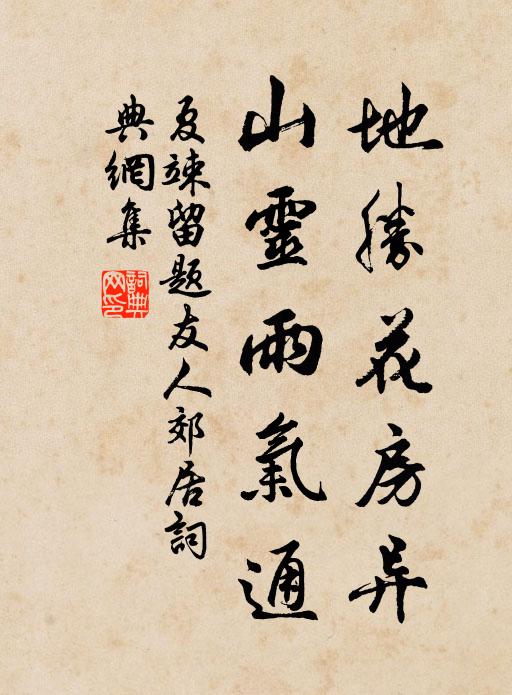 地勝花房异
山靈雨氣通
夏竦留題友人郊居詞
典網集
詞典网印